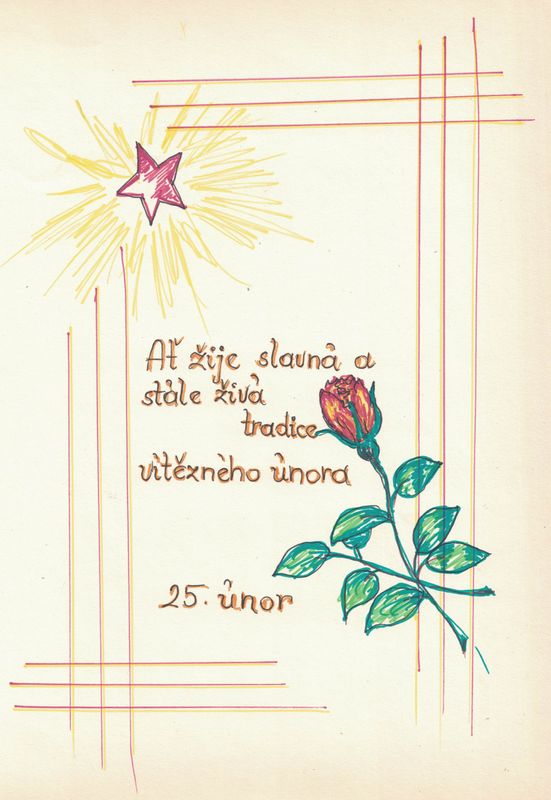 Ať žije slavná a
stále živá
tradice
vítězného února
25. únor